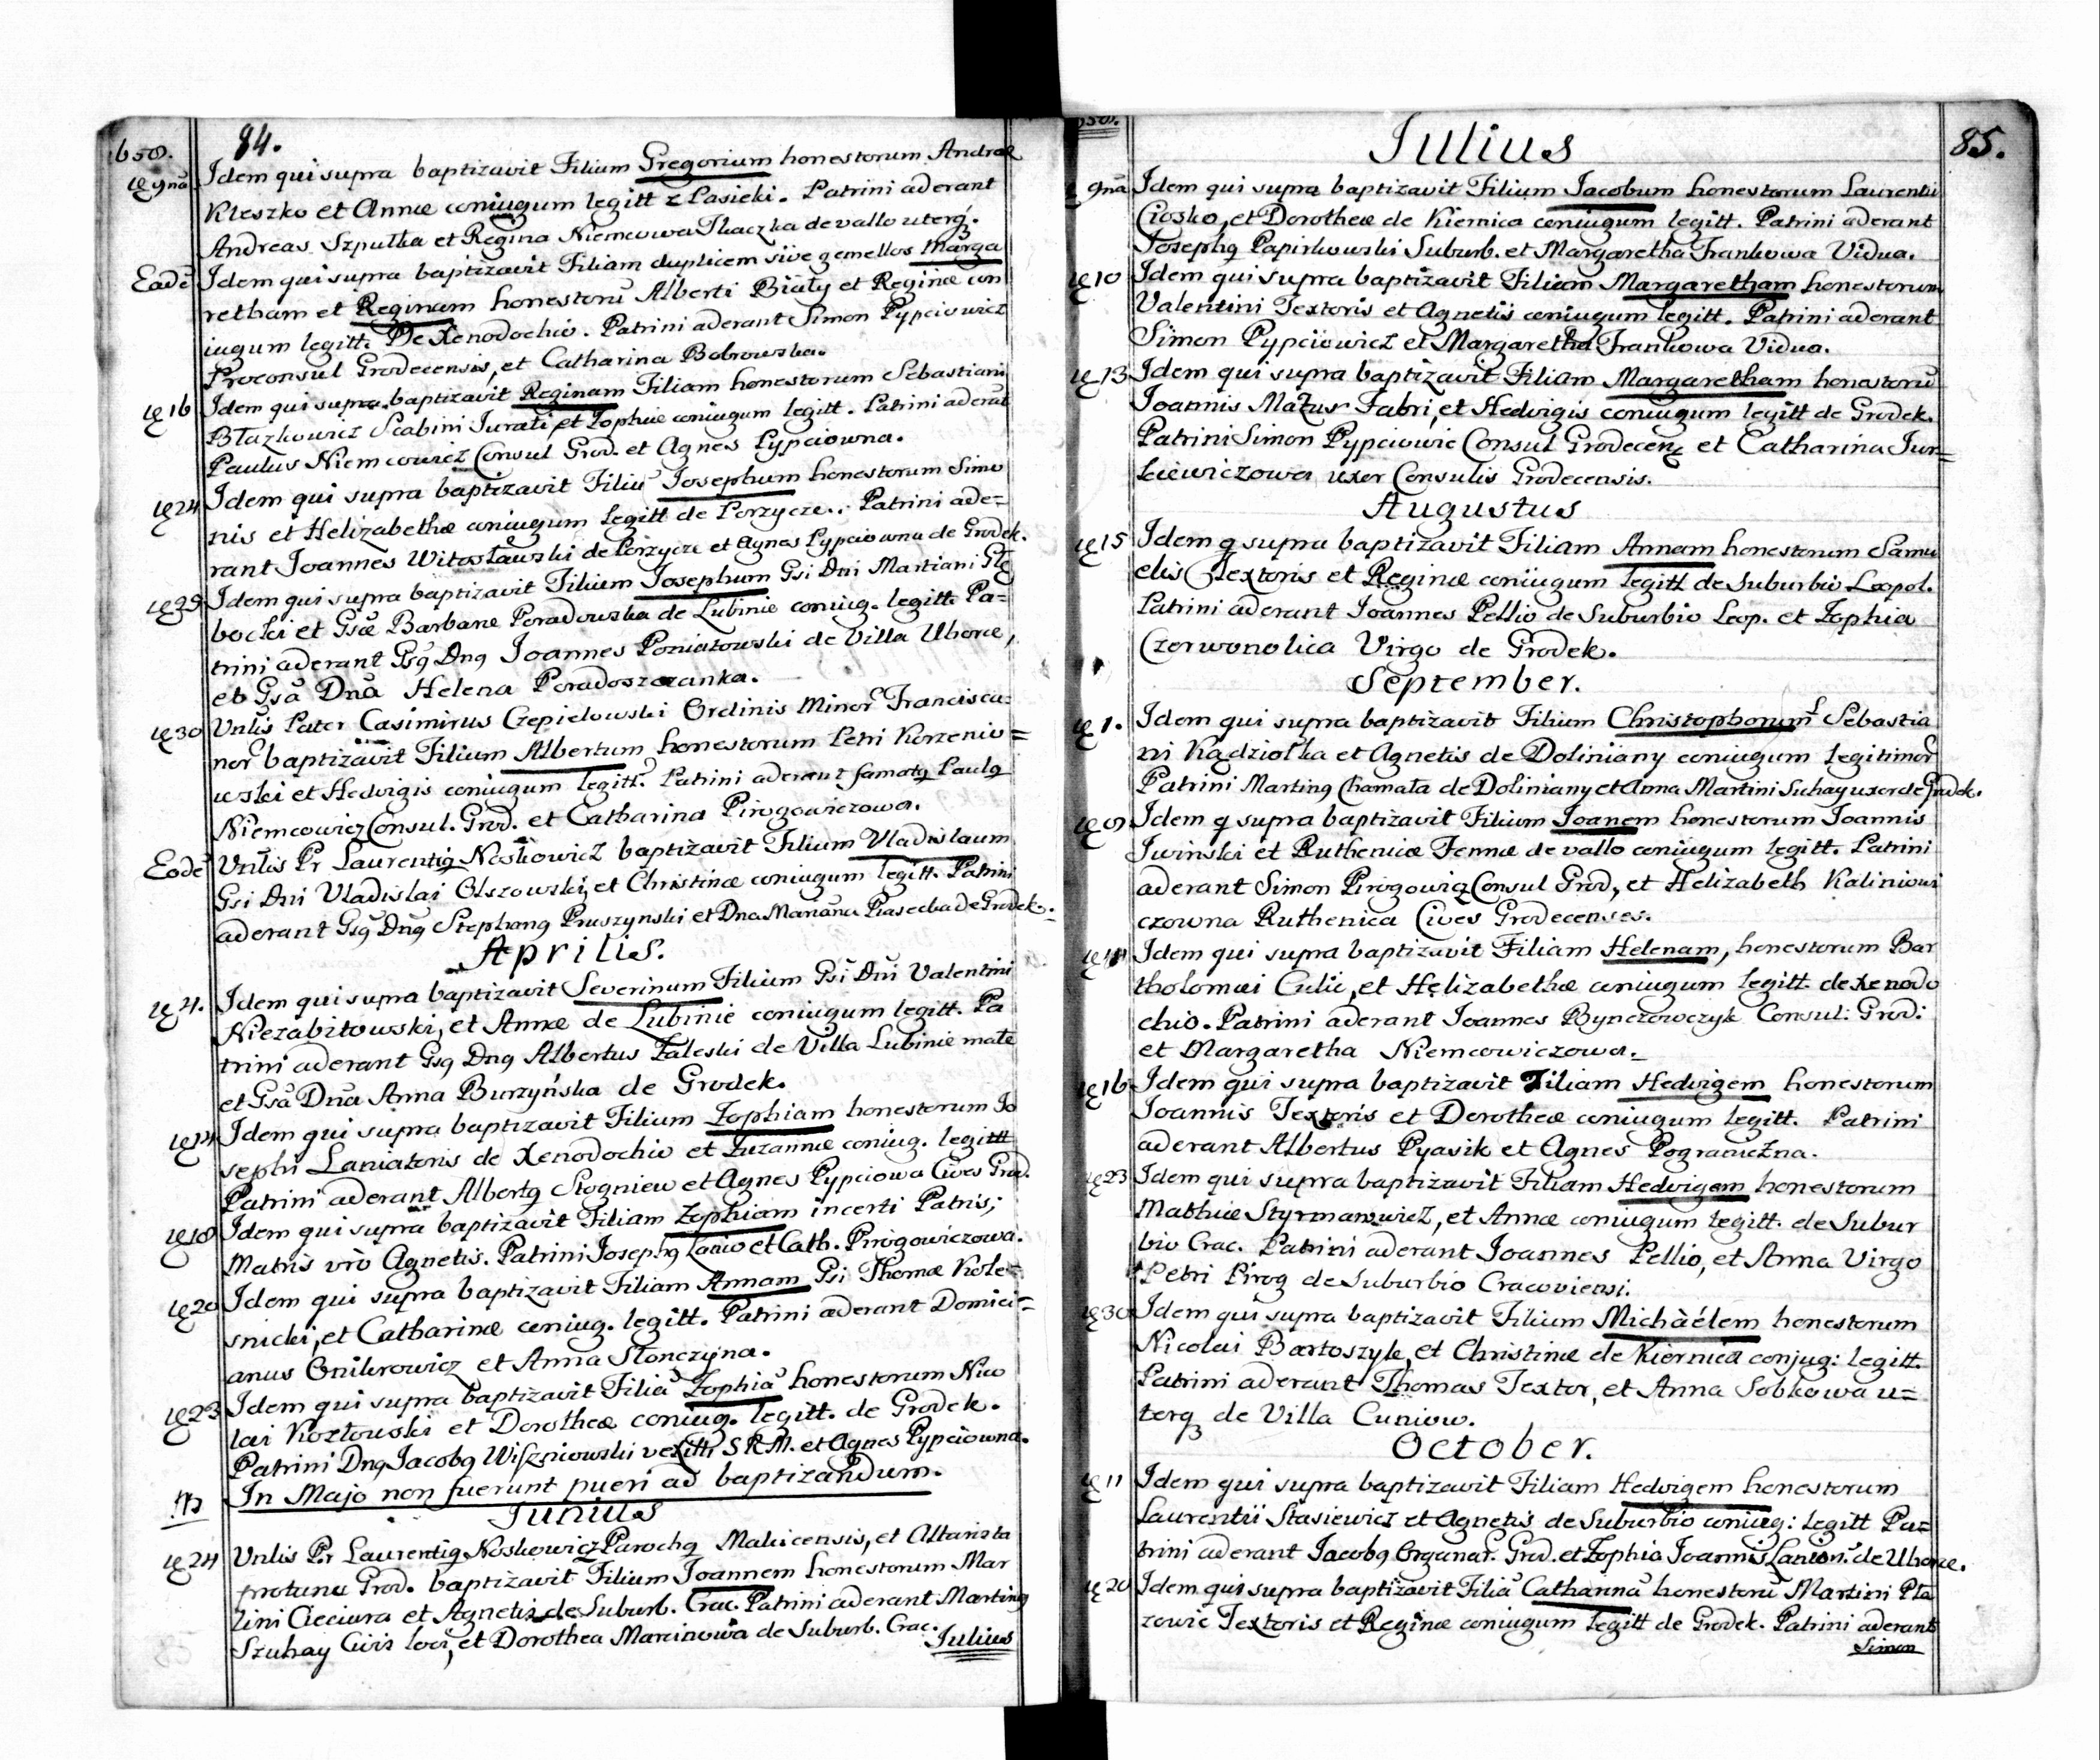 1658.
84.
9na Idem qui supra baptizavit Filium Gregorium honestorum Andreæ
Kleszko et Annæ coniugum legitt z Pasieki. Patrini aderant
Andreas Szpulka et Regina Niemcowa Tkaczka de vallo uterq.
Eadē Idem qui supra baptizavit Filiam duplicem sive gemellos Marga
retham et Reginam honestorū Alberti Biały et Reginæ con
iugum legitt. De Xenodochio. Patrini aderant Simon Pypciowicz
Proconsul Grodecensis, et Catharina Bobrowska.
16 Idem qui supra baptizavit Reginam Filiam honestorum Sebastiani
Błazkowicz Scabini Jurati et Zophiæ coniugum legitt. Patrini aderāt
Paulus Niemcowicz Consul Grod. et Agnes Pypciowna.
24 Idem qui supra baptizavit Filiū Josephum honestorum Simo
nis et Helizabethæ coniugum legitt de Porzycze. Patrini ade=
rant Joannes Witosławski de Porzycze et Agnes Pypciowna de Grodek.
29 Idem qui supra baptizavit Filium Josephum Gsi Dni Martiani Głę
bocki et Gsæ Barbaræ Poradowska de Lubinie coniug. legitt. Pa=
trini aderant Gsq Dnq Joannes Poniatowski de Villa Uherce,
et Gsā Dnā Helena Poradoszczanka.
30 Vnlis Pater Casimirus Czepielowski Ordinis Minor Francisca=
nor baptizavit Filium Albertum honestorum Petri Korzenio=
wski et Hedvigis coniugum legitt. Patrini aderant famatq Paulq
Niemcowicz Consul. Grod. et Catharina Pirogowiczowa.
Eodē Vnlis Pr Laurentiq Noskowicz baptizavit Filium Vladislaum
Gsi Dni Vladislai Olszowski, et Christinæ coniugum legitt. Patrini
aderant Gsq Dnq Stephanq Pruszynski et Dna Mariāna Piasecka de Grodek.
Aprilis.
4. Idem qui supra baptizavit Severinum Filium Gsi Dni Valentini
Niezabitowski, et Annæ de Lubinie coniugum legitt. Pa
trini aderant Gsq Dnq Albertus Zaleski de Villa Lubinie małe
et Gsā Dnā Anna Burzyńska de Grodek.
14 Idem qui supra baptizavit Filium Zophiam honestorum Jo
sephi Laniatoris de Xenodochio et Zuzannæ coniug. legitt
Patrini aderant Albertq Stogniew et Agnes Pypciowa Cives Grod.
18 Idem qui supra baptizavit Filiam Zophiam incerti Patris;
Matris vrò Agnetis. Patrini Josephq Lanio et Cath. Pirogowiczowa.
20 Idem qui supra baptizavit Filiam Annam Gsi Thomæ Kole=
snicki, et Catharinæ coniug. legitt. Patrini aderant Domici=
anus Onikrowicz et Anna Słonczyna.
23 Idem qui supra baptizavit Filiā Zophiā honestorum Nico
lai Kozłowski et Dorotheæ coniug. legitt. de Grodek.
Patrini Dnq Jacobq Wiszniowski S.R.M. et Agnes Pypciowna.
In Majo non fuerunt pueri ad baptizandum.
Junius
24 Vnlis Pr Laurentiq Noskowicz Parochq Malicensis, et Altarista
protunc Grod. baptizavit Filium Joannem honestorum Mar
tini Cieciura et Agnetis de Suburb. Crac. Patrini aderant Martinq
Szuhay Civis loci, et Dorothea Marcinowa de Suburb. Crac.
Julius
85.
Iulius
9na Idem qui supra baptizavit Filium Jacobum honestorum Laurentii
Ciosko, et Dorotheæ de Kiernica coniugum legitt. Patrini aderant
Josephq Papirkowski Suburb. et Margaretha Frankowa Vidua.
10 Idem qui supra baptizavit Filiam Margaretham honestorum
Valentini Textoris et Agnetis coniugum legitt. Patrini aderant
Simon Pypciowicz et Margaretha Frankowa Vidua.
13 Idem qui supra baptizavit Filiam Margaretham honestorū
Joannis Mazur Fabri, et Hedvigis coniugum legitt de Grodek.
Patrini Simon Pypciowic Consul Grodecen et Catharina Jur=
kiewiczowa uxor Consulis Grodecensis.
Augustus
15 Idem q supra baptizavit Filiam Annam honestorum Samu
elis Textoris et Reginæ coniugum legitt de Suburbio Leopol.
Patrini aderant Joannes Pellio de Suburbio Leop. et Zophia
Czerwonolica Virgo de Grodek.
September.
1. Idem qui supra baptizavit Filium Christophorum Sebastia
ni Kądziołka et Agnetis de Doliniany coniugum legitimor
Patrini Martinq Chamała de Doliniany et Anna Martini Suhay uxor de Grodek.
9 Idem q supra baptizavit Filium Joanem honestorum Joannis
Jwinski et Rutheniæ Fennæ de vallo coniugum legitt. Patrini
aderant Simon Pirogowicz Consul Grod, et Helizabeth Kaliniowi
czowna Ruthenica Cives Grodecenses.
Idem qui supra baptizavit Filiam Helenam, honestorum Bar
tholomæi Culic, et Helizabethæ coniugum legitt. de Xenodo
chio. Patrini aderant Joannes Bynczowczyk Consul: Grod:
et Margaretha Niemcowiczowa.
16 Idem qui supra baptizavit Filiam Hedvigem honestorum
Joannis Textoris et Dorotheæ coniugum legitt. Patrini
aderant Albertus Pyasik et Agnes Pograniczna.
23 Idem qui supra baptizavit Filiam Hedvigem honestorum
Mathiæ Styrmanowicz, et Annæ coniugum legitt. de Subur
bio Crac. Patrini aderant Joannes Pellio, et Anna Virgo
Petri Pirog de Suburbio Cracoviensi.
30 Idem qui supra baptizavit Filium Michàélem honestorum
Nicolai Bartoszyk, et Christinæ de Kiernica conjug: legitt.
Patrini aderant Thomas Textor, et Anna Sobkowa u=
terq de Villa Cuniow.
October.
11 Idem qui supra baptizavit Filiam Hedvigem honestorum
Laurentii Stasiewicz et Agnetis de Suburbio coniug: legitt Pa=
trini aderant Jacobq Organar. Grod. et Zophia Joannis Lanion. de Uherce.
20 Idem qui supra baptizavit Filiā Catharinā honestorū Martini Pta
zowic Textoris et Reginæ coniugum legitt de Grodek. Patrini aderant
Simon